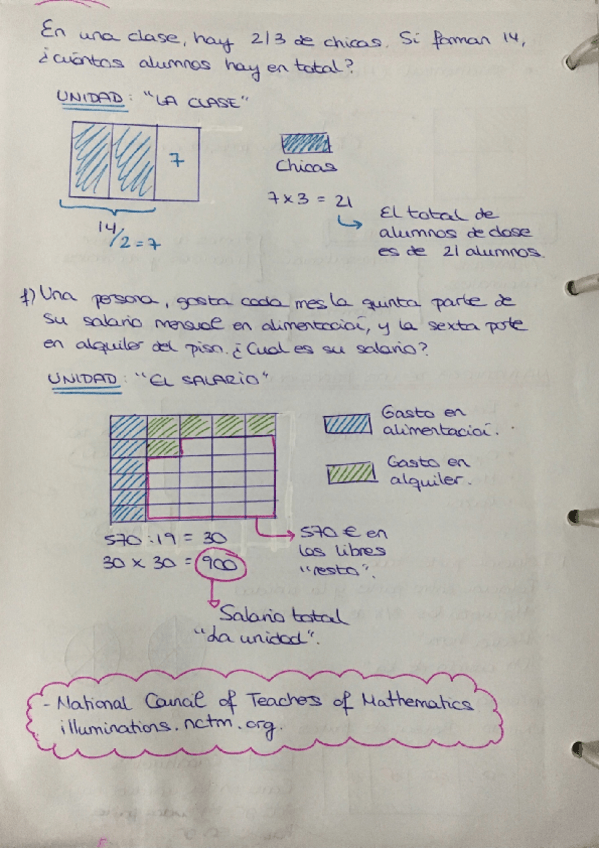 En una clase, hay 2/3 de chicas. Si forman 14,
¿cuántos alumnos hay en total?
UNIDAD: "LA CLASE"
7
Chicas
7 x 3 = 21
14/2 = 7
El total de
alumnos de clase
es de 21 alumnos.
1) Una persona, gasta cada mes la quinta parte de
su salario mensual en alimentación, y la sexta parte
en alquiler del piso. ¿Cual es su salario?
UNIDAD: "EL SALARIO"
Gasto en
alimentación.
Gasto en
alquiler.
570 : 19 = 30
30 x 30 = 900
570 € en
los libres
"resto".
Salario total
"La unidad".
- National Council of Teaches of Mathematics
illuminations.nctm.org.